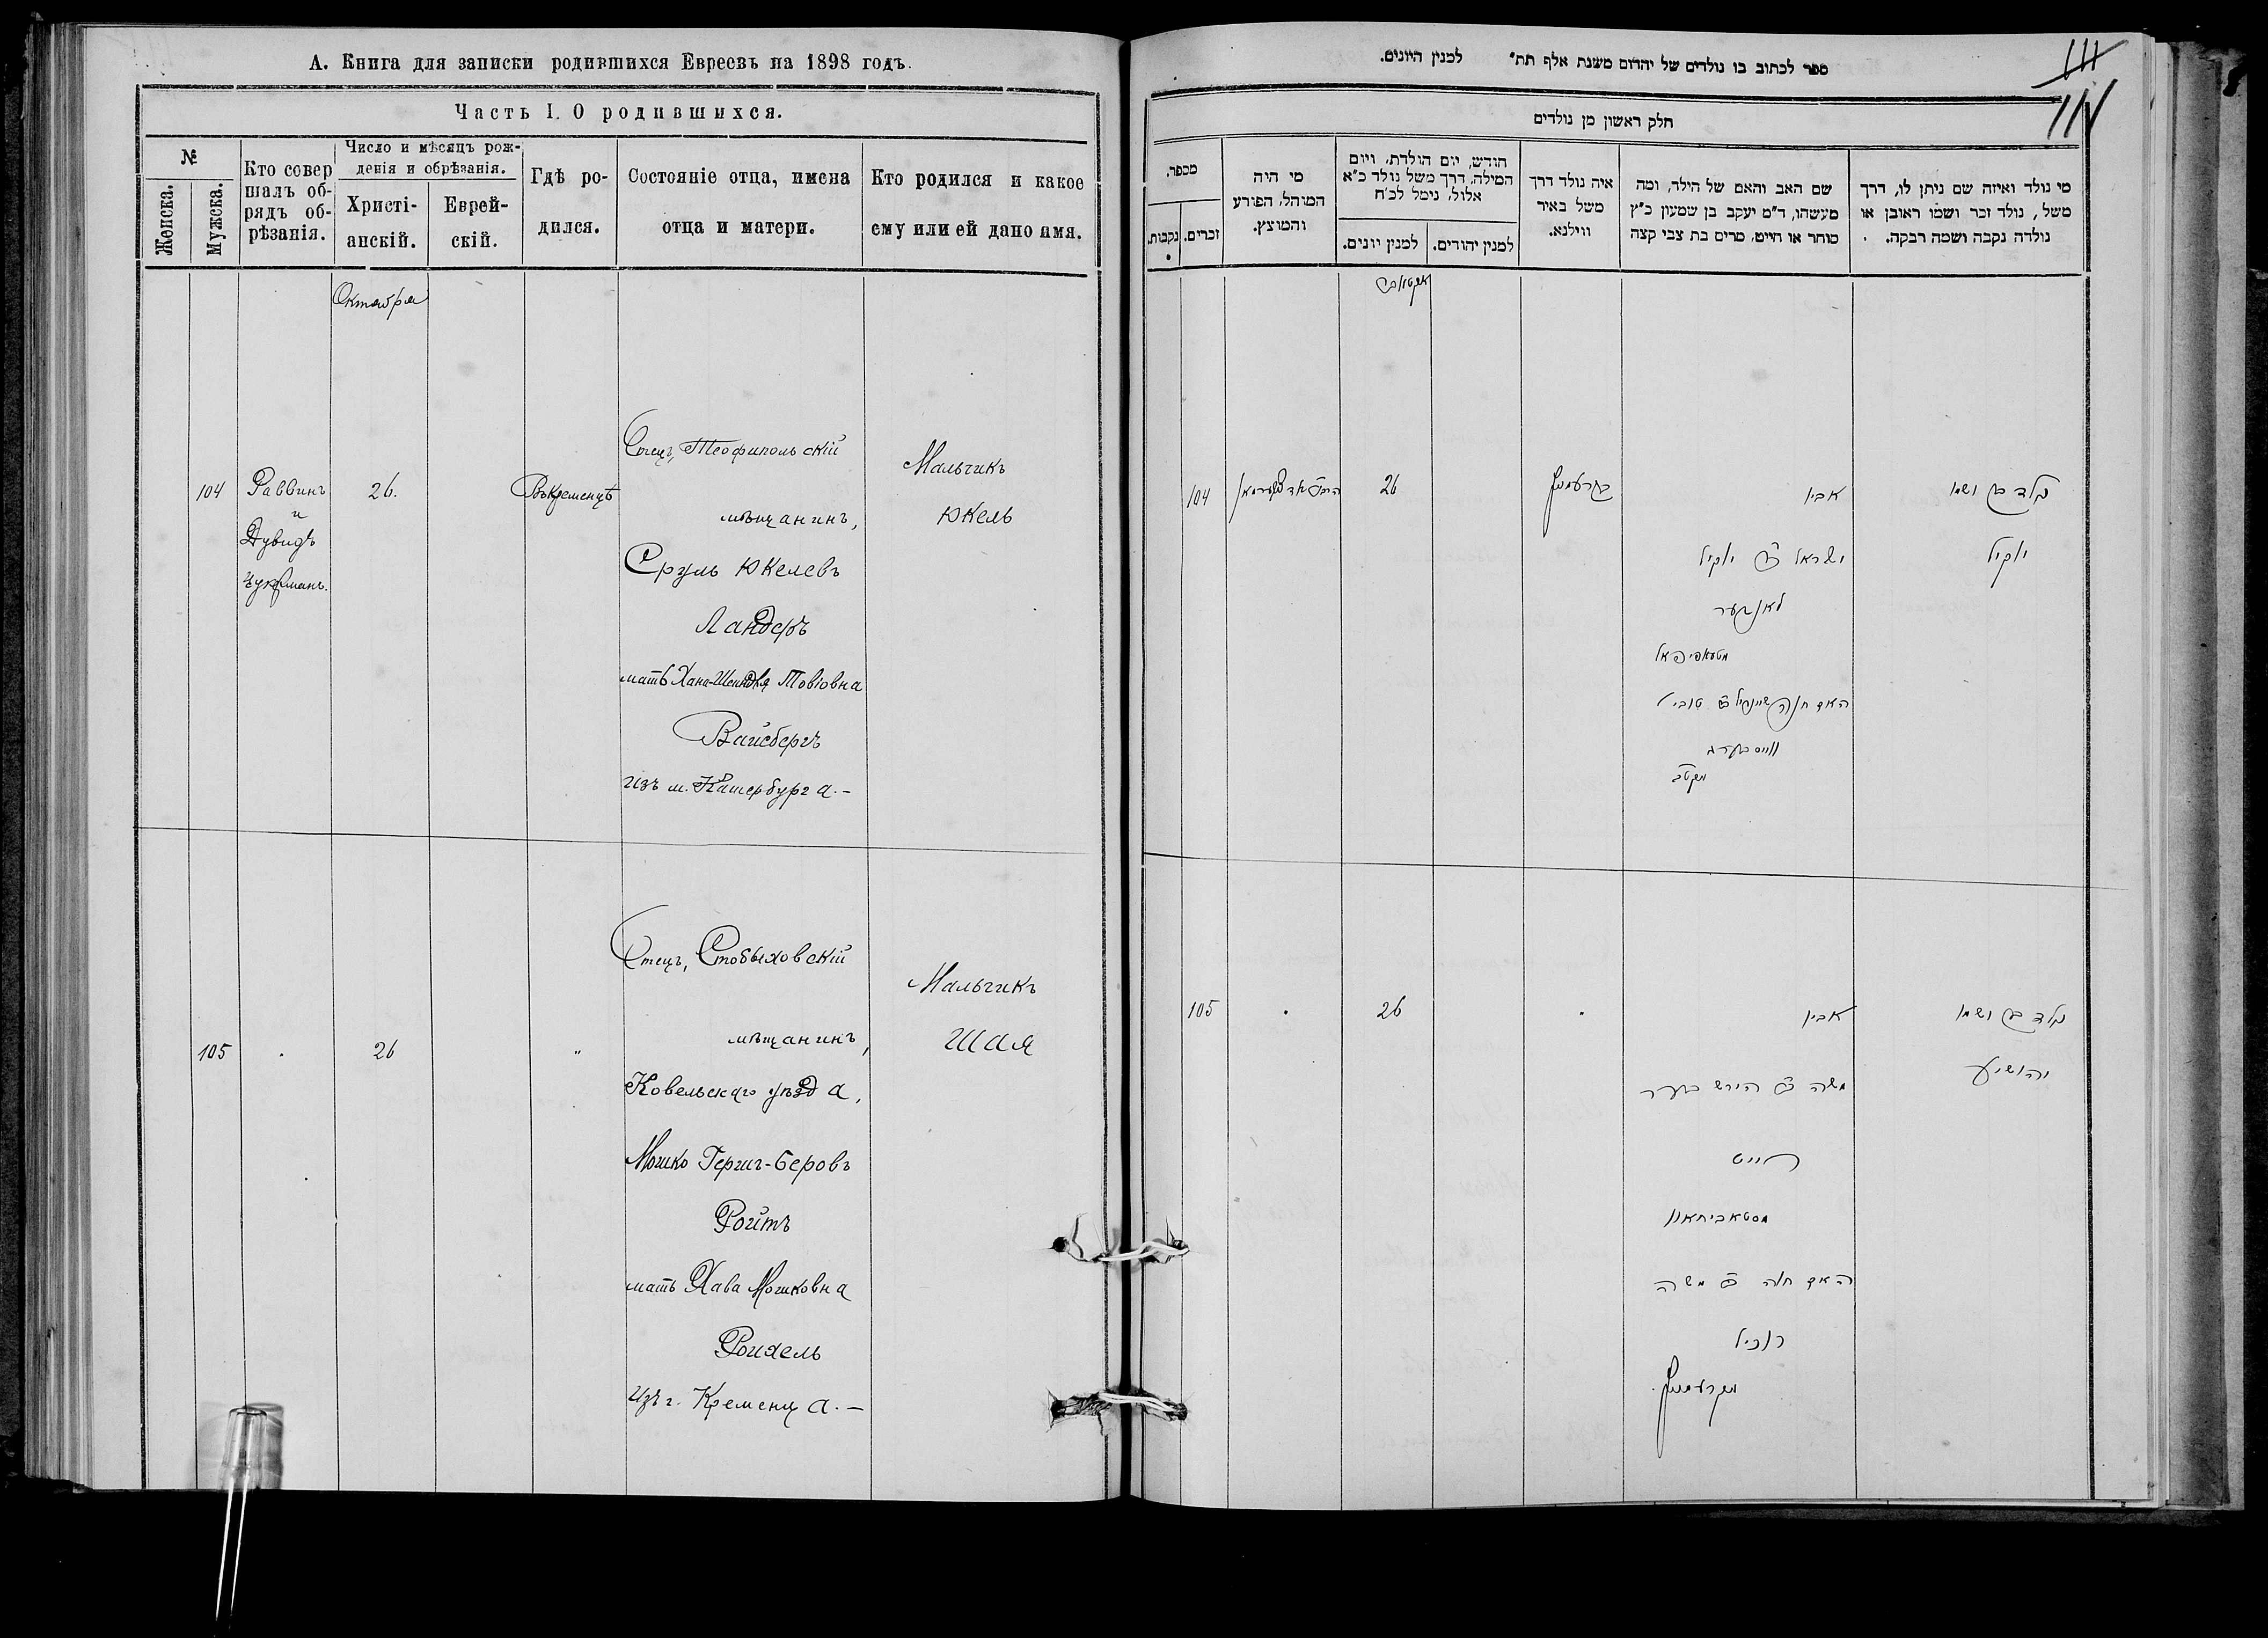 А. Книга для записки родившихся Евреевъ на 1898 годъ.
Часть I. О родившихся.
№
Женска.
Мужска.
Кто совер
шалъ об-
рядъ об-
рѣзанія.
Число и мѣсяцъ рож-
денія и обрѣзанія.
Христі-
анскій.
Еврей-
скій.
Гдѣ ро-
дился.
Состояніе отца, имена
отца и матери.
Кто родился и какое
ему или ей дано имя.
Октября
104
Раввинъ
и
Дувидъ
Цукерманъ.
26.
Въ Кременцѣ
Отецъ, Теофипольскій
мѣщанинъ,
Сруль Юкелевъ
Ландеръ
мать Хана-Шейндля Товіовна
Вайсбергъ
изъ м. Катербурга.-
Мальчикъ
Юкель
105
26
"
Отецъ, Стобыховскій
мѣщанинъ,
Ковельскаго уѣзда,
Мошко Герш-Беровъ
Ройтъ
мать Хава Мошковна
Роихель
изъ г. Кременца.-
Мальчикъ
Шая
ספר לכתוב בו נולדים של יהדום משנת אלף תת" למנין היונים.
111
חלק ראשון מן נולדים
מספר.
נקבות.
זכרים.
מי היה
המוהל, הפורע
והמוצץ.
חודש, יום הולדת, ויום
המילה, דרך משל נולד כ"א
אלול, נימל לכ"ח
למנין יונים.
למנין יהודים.
איה נולד דרך
משל באיר
ווילנא.
שם האב והאם של הילד, ומה
מעשהו, ד"מ יעקב בן שמעון כ"ץ
סוחר או חייט, מרים בת צבי קצה
מי נולד ואיזה שם ניתן לו, דרך
משל, נולד זכר ושמו ראובן או
נולדה נקבה ושמה רבקה.
אקטאבר
104
26
קרעמניץ
אביו
ישראל ב"ר יוקיל
לאנדער
מטעאפיפאל
האם חנה שיינדיל ב"ר טובי'
ווייסבערג
נולד בן ושמו
יוקיל
105
26
אביו
משה ב"ר הירש בער
רויט
מסטאביחאוו
האם חוה ב"ר משה
רוכיל
מקרעמניץ
נולד בן ושמו
יהושיע